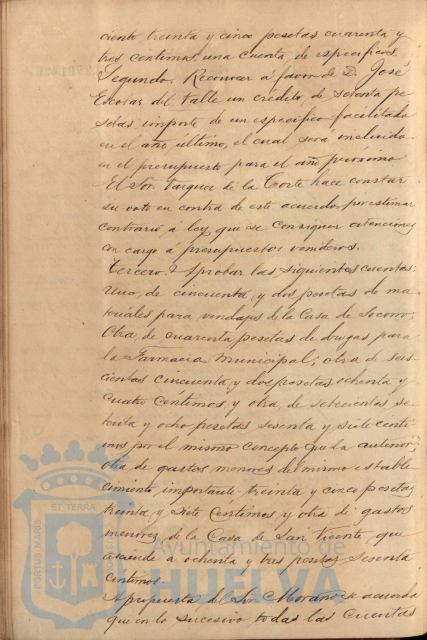 ciento treinta y cinco pesetas cuarenta y
tres centimos, una cuenta de especificos.
Segundo. Reconocer á favor de D. José
Escolar del Valle un crédito de setenta pe
setas, importe de un especifico facilitado
en el año último, el cual será incluido
en el presupuesto para el año próximo
El Sor. Vazquez de la Corte hace constar
su voto en contra de este acuerdo por estimar
contrario á ley que se consignen atenciones
con cargo á presupuestos venideros.
Tercero. Aprobar las siguientes cuentas:
Una, de cincuenta y dos pesetas de ma
teriales para vendajes de la Casa de Socorro;
Otra, de cuarenta pesetas de drogas para
la Farmacia Municipal; otra de seis-
cientas cincuenta y dos pesetas ochenta y
cuatro centimos, y otra de setecientas se
tenta y ocho pesetas sesenta y siete centi
mos por el mismo concepto que la anterior;
otra de gastos menores del mismo estable
cimiento importante treinta y cinco pesetas
treinta y siete centimos y otra de gastos
menores de la Casa de San Vicente, que
asciende á ochenta y tres pesetas sesenta
centimos.
A propuesta del Sor. Morano se acuerda
que en lo sucesivo todas las cuentas
PORTUS MARIS ET TERRA
Ayuntamiento de
HUELVA